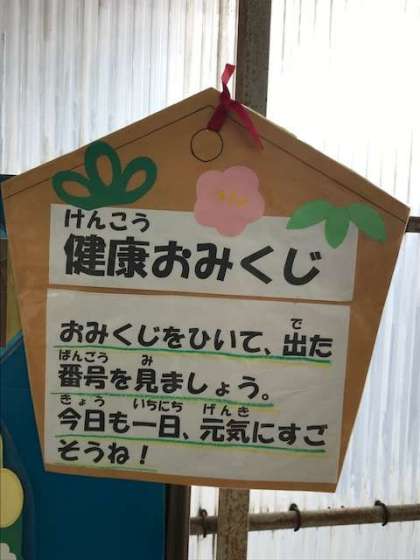 けんこう
健康おみくじ
おみくじをひいて、出た
で
番号を見ましょう。
ばんごう み
今日も一日、元気にすご
きょう いちにち げんき
そうね！